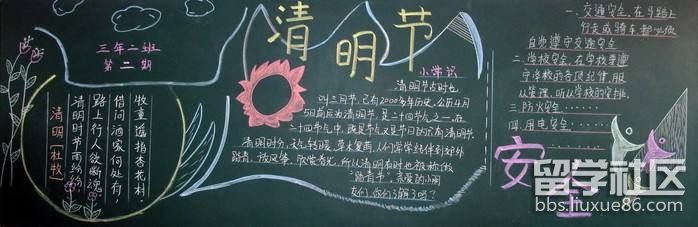 三年二班
第二期
清明[杜牧]
清明时节雨纷纷,
路上行人欲断魂。
借问酒家何处有,
牧童遥指杏花村。
清明节
小常识
清明节古时也
叫三月节,已有2000多年历史,公历4月
5日前后为清明节,是二十四节气之一,在
二十四节气中,既是节气又是节日的只有清明节
清明时分,天气转暖,草木复苏,人们常常结伴到郊外
踏青,放风筝,欣赏春光,所以清明有时也被称做
"踏青节",亲爱的小朋
友们,你们了解了吗?
一、交通安全,在马路上
行走或骑车都必须
自觉遵守交通安全
二、学校安全,在学校要遵
守学校的各项纪律,服
从管理,听从学校的安排
三、防火安全……
四、用电安全……
安全
留学社区
bbs.liuxue86.com